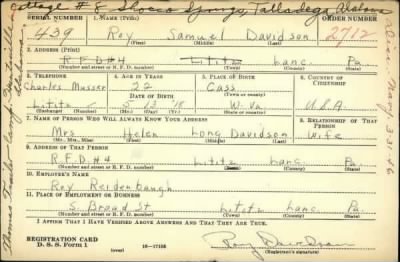 Cottage # 8 Shocco Springs, Talladega, Alabama
SERIAL NUMBER 1. NAME (Print) ORDER NUMBER
439 Roy Samuel Davidson 2712
(First) (Middle) (Last)
2. ADDRESS (Print)
R.F.D #4 Lititz Lanc. Pa.
(Number and street or R. F. D. number) (Town) (County) (State)
3. TELEPHONE 4. AGE IN YEARS 5. PLACE OF BIRTH 6. COUNTRY OF CITIZENSHIP
Charles Musser 22 Cass
DATE OF BIRTH (Town or county)
Lititz 5 13 '18 W. Va. U.S.A
(Exchange) (Number) (Mo.) (Day) (Yr.) (State or country)
7. NAME OF PERSON WHO WILL ALWAYS KNOW YOUR ADDRESS 8. RELATIONSHIP OF THAT PERSON
Mrs Helen Long Davidson Wife
(Mr., Mrs., Miss) (First) (Middle) (Last)
9. ADDRESS OF THAT PERSON
R.F.D. #4 Lititz Lanc. Pa.
(Number and street or R. F. D. number) (Town) (County) (State)
10. EMPLOYER'S NAME
Roy Reidenbaugh
11. PLACE OF EMPLOYMENT OR BUSINESS
S. Broad St Lititz Lanc. Pa.
(Number and street or R. F. D. number) (Town) (County) (State)
I AFFIRM THAT I HAVE VERIFIED ABOVE ANSWERS AND THAT THEY ARE TRUE.
REGISTRATION CARD
D. S. S. Form 1 (over) 16—17105 Roy Davidson
(Registrant's signature)
3-31-46